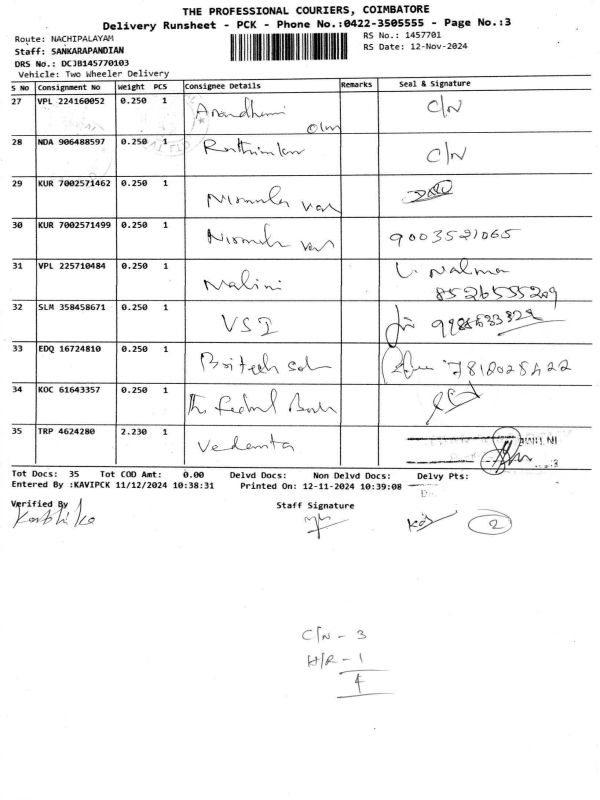 THE PROFESSIONAL COURIERS, COIMBATORE
Delivery Runsheet - PCK - Phone No.:0422-3505555 - Page No.:3
Route: NACHIPALAYAM RS No.: 1457701
Staff: SANKARAPANDIAN RS Date: 12-Nov-2024
DRS No.: DCJB145770103
Vehicle: Two Wheeler Delivery
S No Consignment No Weight PCS Consignee Details Remarks Seal & Signature
27 VPL 224160052 0.250 1 C/N
28 NDA 906488597 0.250 1 C/N
29 KUR 7002571462 0.250 1
30 KUR 7002571499 0.250 1 9003521065
31 VPL 225710484 0.250 1 Malini
8526555209
32 SLM 358458671 0.250 1 VSI
33 EDQ 16724810 0.250 1
34 KOC 61643357 0.250 1 The Federal Bank
35 TRP 4624280 2.230 1 Vedanta
Tot Docs: 35 Tot COD Amt: 0.00 Delvd Docs: Non Delvd Docs: Delvy Pts:
Entered By :KAVIPCK 11/12/2024 10:38:31 Printed On: 12-11-2024 10:39:08
Verified By Staff Signature
2
C/N - 3
H/R - 1
4